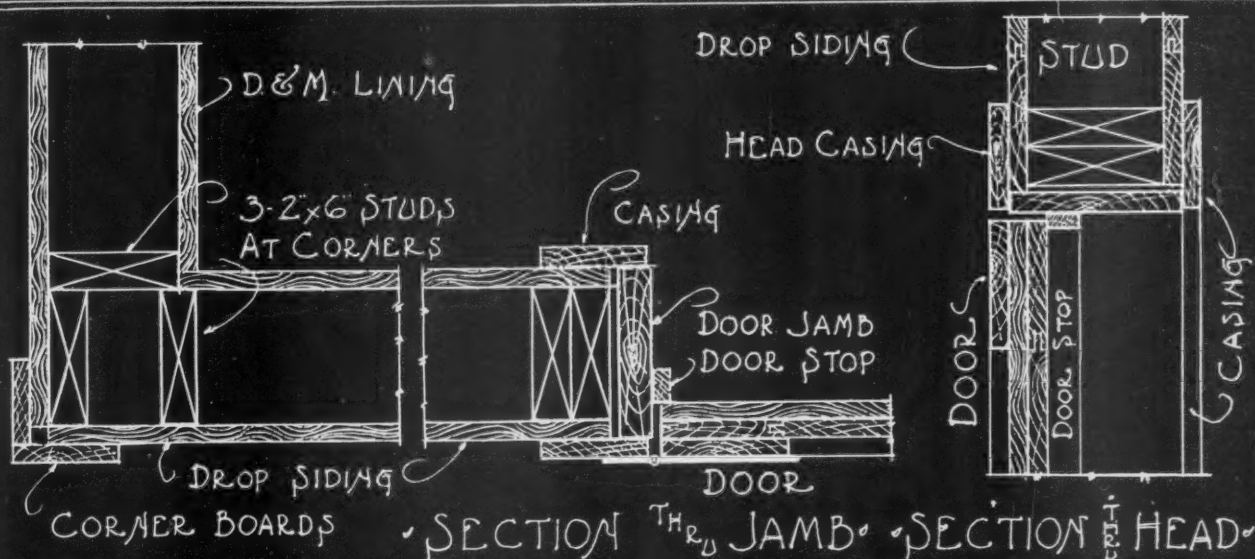 D.&M. LINING
3-2"x6" STUDS
AT CORNERS
CASING
DOOR JAMB
DOOR STOP
DROP SIDING
CORNER BOARDS
DOOR
·SECTION THRU JAMB·
DROP SIDING
STUD
HEAD CASING
DOOR
DOOR STOP
CASING
·SECTION THRU HEAD·